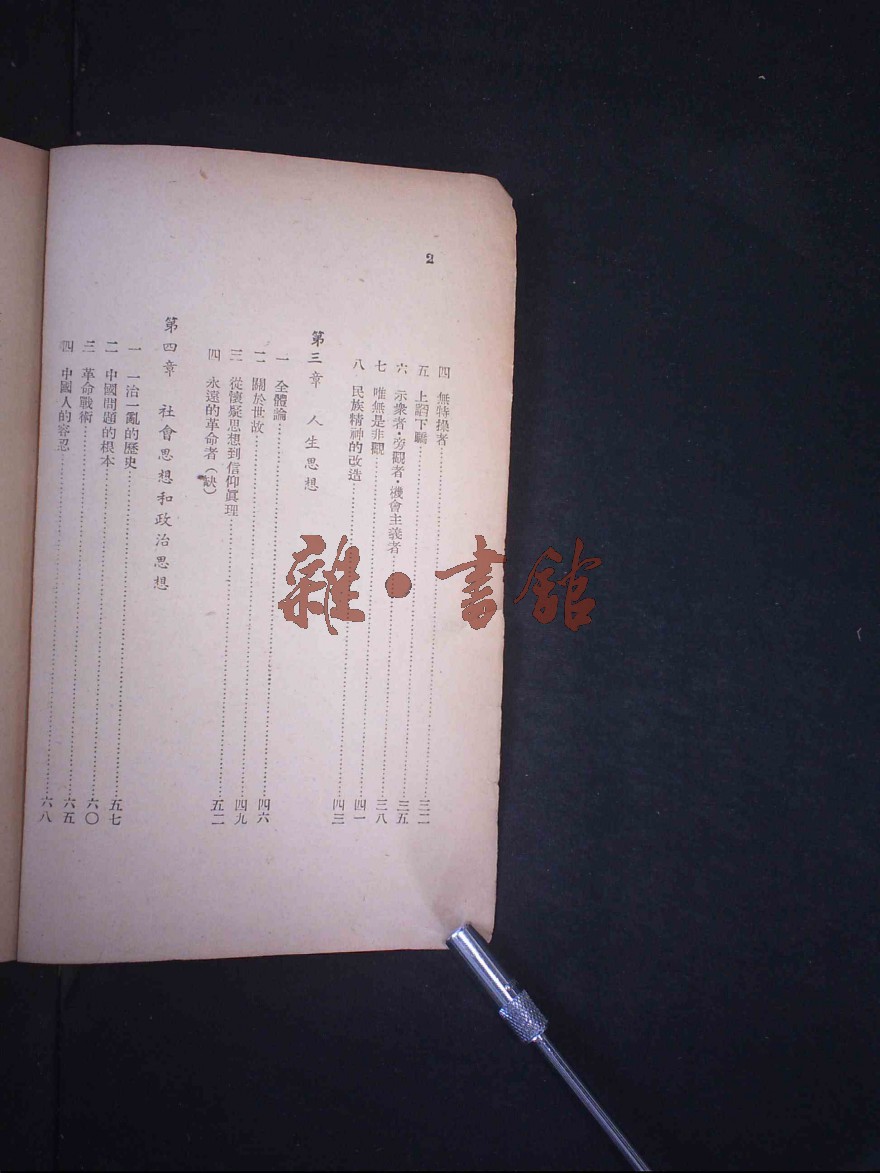 2
四 無特操者……三二
五 上諂下驕……三五
六 示衆者・旁觀者・機會主義者……三八
七 唯無是非觀……四一
八 民族精神的改造……四三
第三章 人生思想
一 全體論……四六
二 關於世故……四九
三 從懷疑思想到信仰眞理……五二
四 永遠的革命者(缺)
第四章 社會思想和政治思想
一 一治一亂的歷史……五七
二 中國問題的根本……六〇
三 革命戰術……六五
四 中國人的容忍……六八
雜・書館